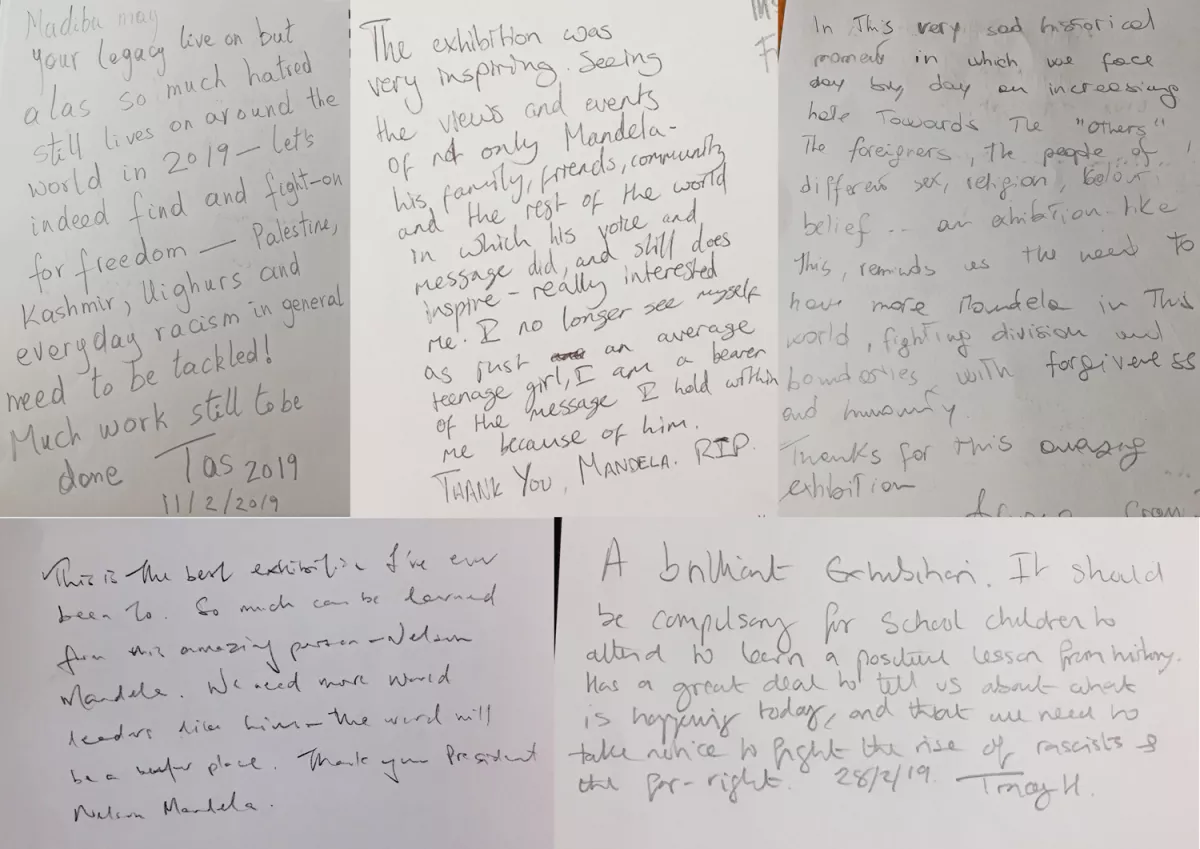 Madiba may
your legacy live on but
alas so much hatred
still lives on around the
world in 2019 — let's
indeed find and fight-on
for freedom — Palestine,
Kashmir, Uighurs and
everyday racism in general
need to be tackled!
Much work still to be
done Tas 2019
11/2/2019
The exhibition was
very inspiring. Seeing
the views and events
of not only Mandela-
his family, friends, community
and the rest of the world
in which his voice and
message did, and still does
inspire - really interested
me. I no longer see myself
as just an average
teenage girl, I am a bearer
of the message I hold within
me because of him.
THANK YOU, MANDELA. RIP.
In This very sad historical
moment in which we face
day by day an increasing
hate Towards The "others"
The foreigners, the people of
different sex, religion, colour
belief .. an exhibition like
This, reminds us the need to
have more Mandela in This
world, fighting division and
boundaries with forgiveness
and humanity.
Thanks for this amazing
exhibition
This is the best exhibition I've ever
been to. So much can be learned
from this amazing person - Nelson
Mandela. We need more world
leaders like him - the word will
be a place. Thank you President
Nelson Mandela.
A brilliant Exhibition. It should
be compulsory for School children to
attend to learn a positive lesson from history.
Has a great deal to tell us about what
is happening today, and that we need to
take notice to fight the rise of rascists &
the far-right. 28/2/19. Tracy H.